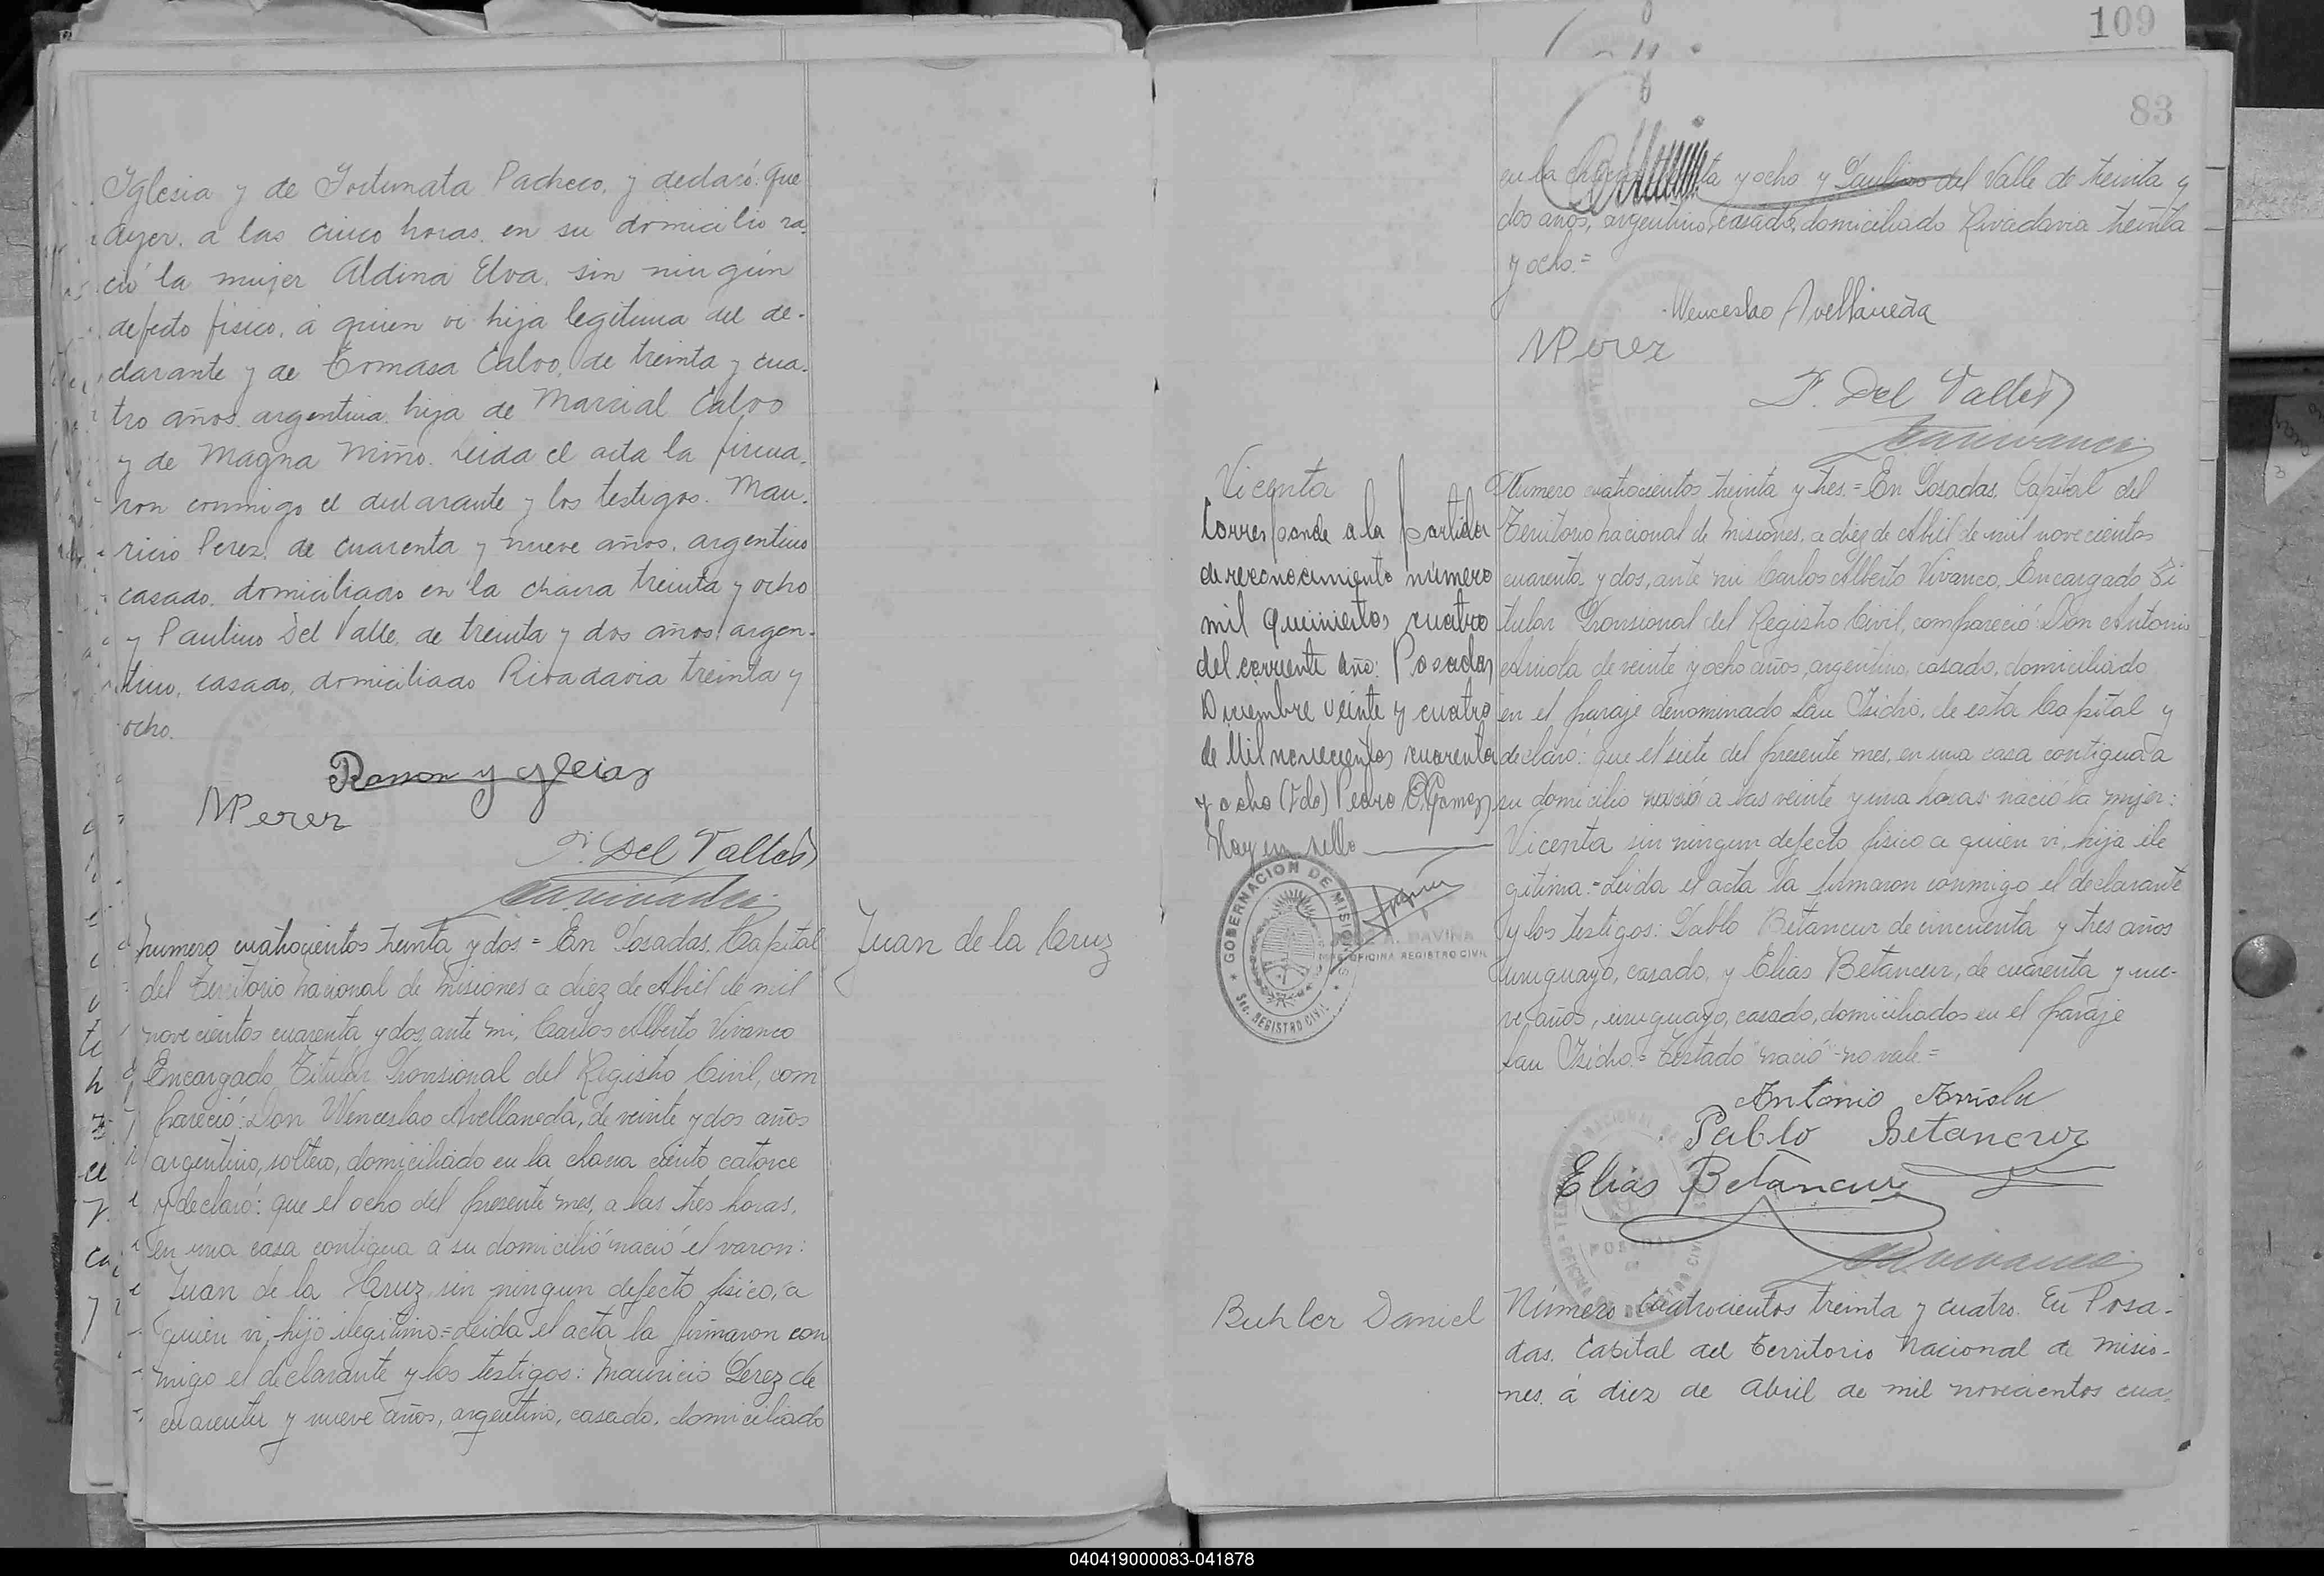 Iglesia y de Fortunata Pacheco, y declaró: que
ayer, a las cinco horas, en su domicilio na-
ció la mujer Aldina Elva, sin ningún
defecto fisico, á quien vi hija legitima del de-
clarante y de Tomasa Calvo, de treinta y cua-
tro años, argentina, hija de Marcial Calvo
y de Magna Miño. Leida el acta la firma-
ron conmigo el declarante y los testigos: Mau-
ricio Perez, de cuarenta y nueve años, argentino
casado, domiciliado en la chacra treinta y ocho
y Paulino Del Valle, de treinta y dos años, argen-
tino, casado, domiciliado Rivadavia treinta y
ocho.
Ramon Yglecias
MPerez
P. Del Valle
Juan de la Cruz
Numero cuatrocientos treinta y dos = En Posadas, Capital
del Territorio Nacional de Misiones a diez de Abril de mil
novecientos cuarenta y dos, ante mi, Carlos Alberto Vivanco
Encargado Titular Provisional del Registro Civil, com
pareció: Don Wenceslao Avellaneda, de veinte y dos años
argentino, soltero, domiciliado en la chacra ciento catorce
y declaró: que el ocho del presente mes, a las tres horas,
en una casa contigua a su domicilio nació el varon:
Juan de la Cruz, sin ningun defecto fisico, a
quien vi, hijo ilegitimo = Leida el acta la firmaron con
migo el declarante y los testigos: Mauricio Perez de
cuarenta y nueve años, argentino, casado, domiciliado
109
83
en la chacra treinta y ocho y Paulino del Valle de treinta y
dos años, argentino, casado, domiciliado Rivadavia treinta
y ocho =
Wenceslao Avellaneda
MPerez
P. Del Valle
Vicenta
Corresponde a la partida
de reconocimiento número
mil quinientos cuatro
del corriente año: Posadas
Diciembre veinte y cuatro
de Mil novecientos cuarenta
y ocho (Fdo) Pedro O. Gomez
Hay un sello
GOBERNACION DE MISIONES
Sec. REGISTRO CIVIL
DAVIÑA
OFICINA REGISTRO CIVIL
Numero cuatrocientos treinta y tres = En Posadas, Capital del
Territorio Nacional de Misiones, a diez de Abril de mil novecientos
cuarenta y dos, ante mi Carlos Alberto Vivanco, Encargado Ti
tular Provisional del Registro Civil, compareció: Don Antonio
Arriola de veinte y ocho años, argentino, casado, domiciliado
en el paraje denominado San Isidro, de esta Capital y
declaró: que el siete del presente mes, en una casa contigua a
su domicilio nació a las veinte y una horas nació la mujer:
Vicenta sin ningun defecto fisico a quien vi, hija ile
gitima = Leida el acta la firmaron conmigo el declarante
y los testigos: Pablo Betancur de cincuenta y tres años
uruguayo, casado, y Elias Betancur, de cuarenta y nue-
ve años, uruguayo, casado, domiciliados en el paraje
San Isidro = Testado "nació" no vale =
Antonio Arriola
Pablo Betancur
Elias Betancur
Buhler Daniel
Número cuatrocientos treinta y cuatro. En Posa-
das, Capital del Territorio Nacional de Misio-
nes, á diez de Abril de mil novecientos cua-
040419000083-041878